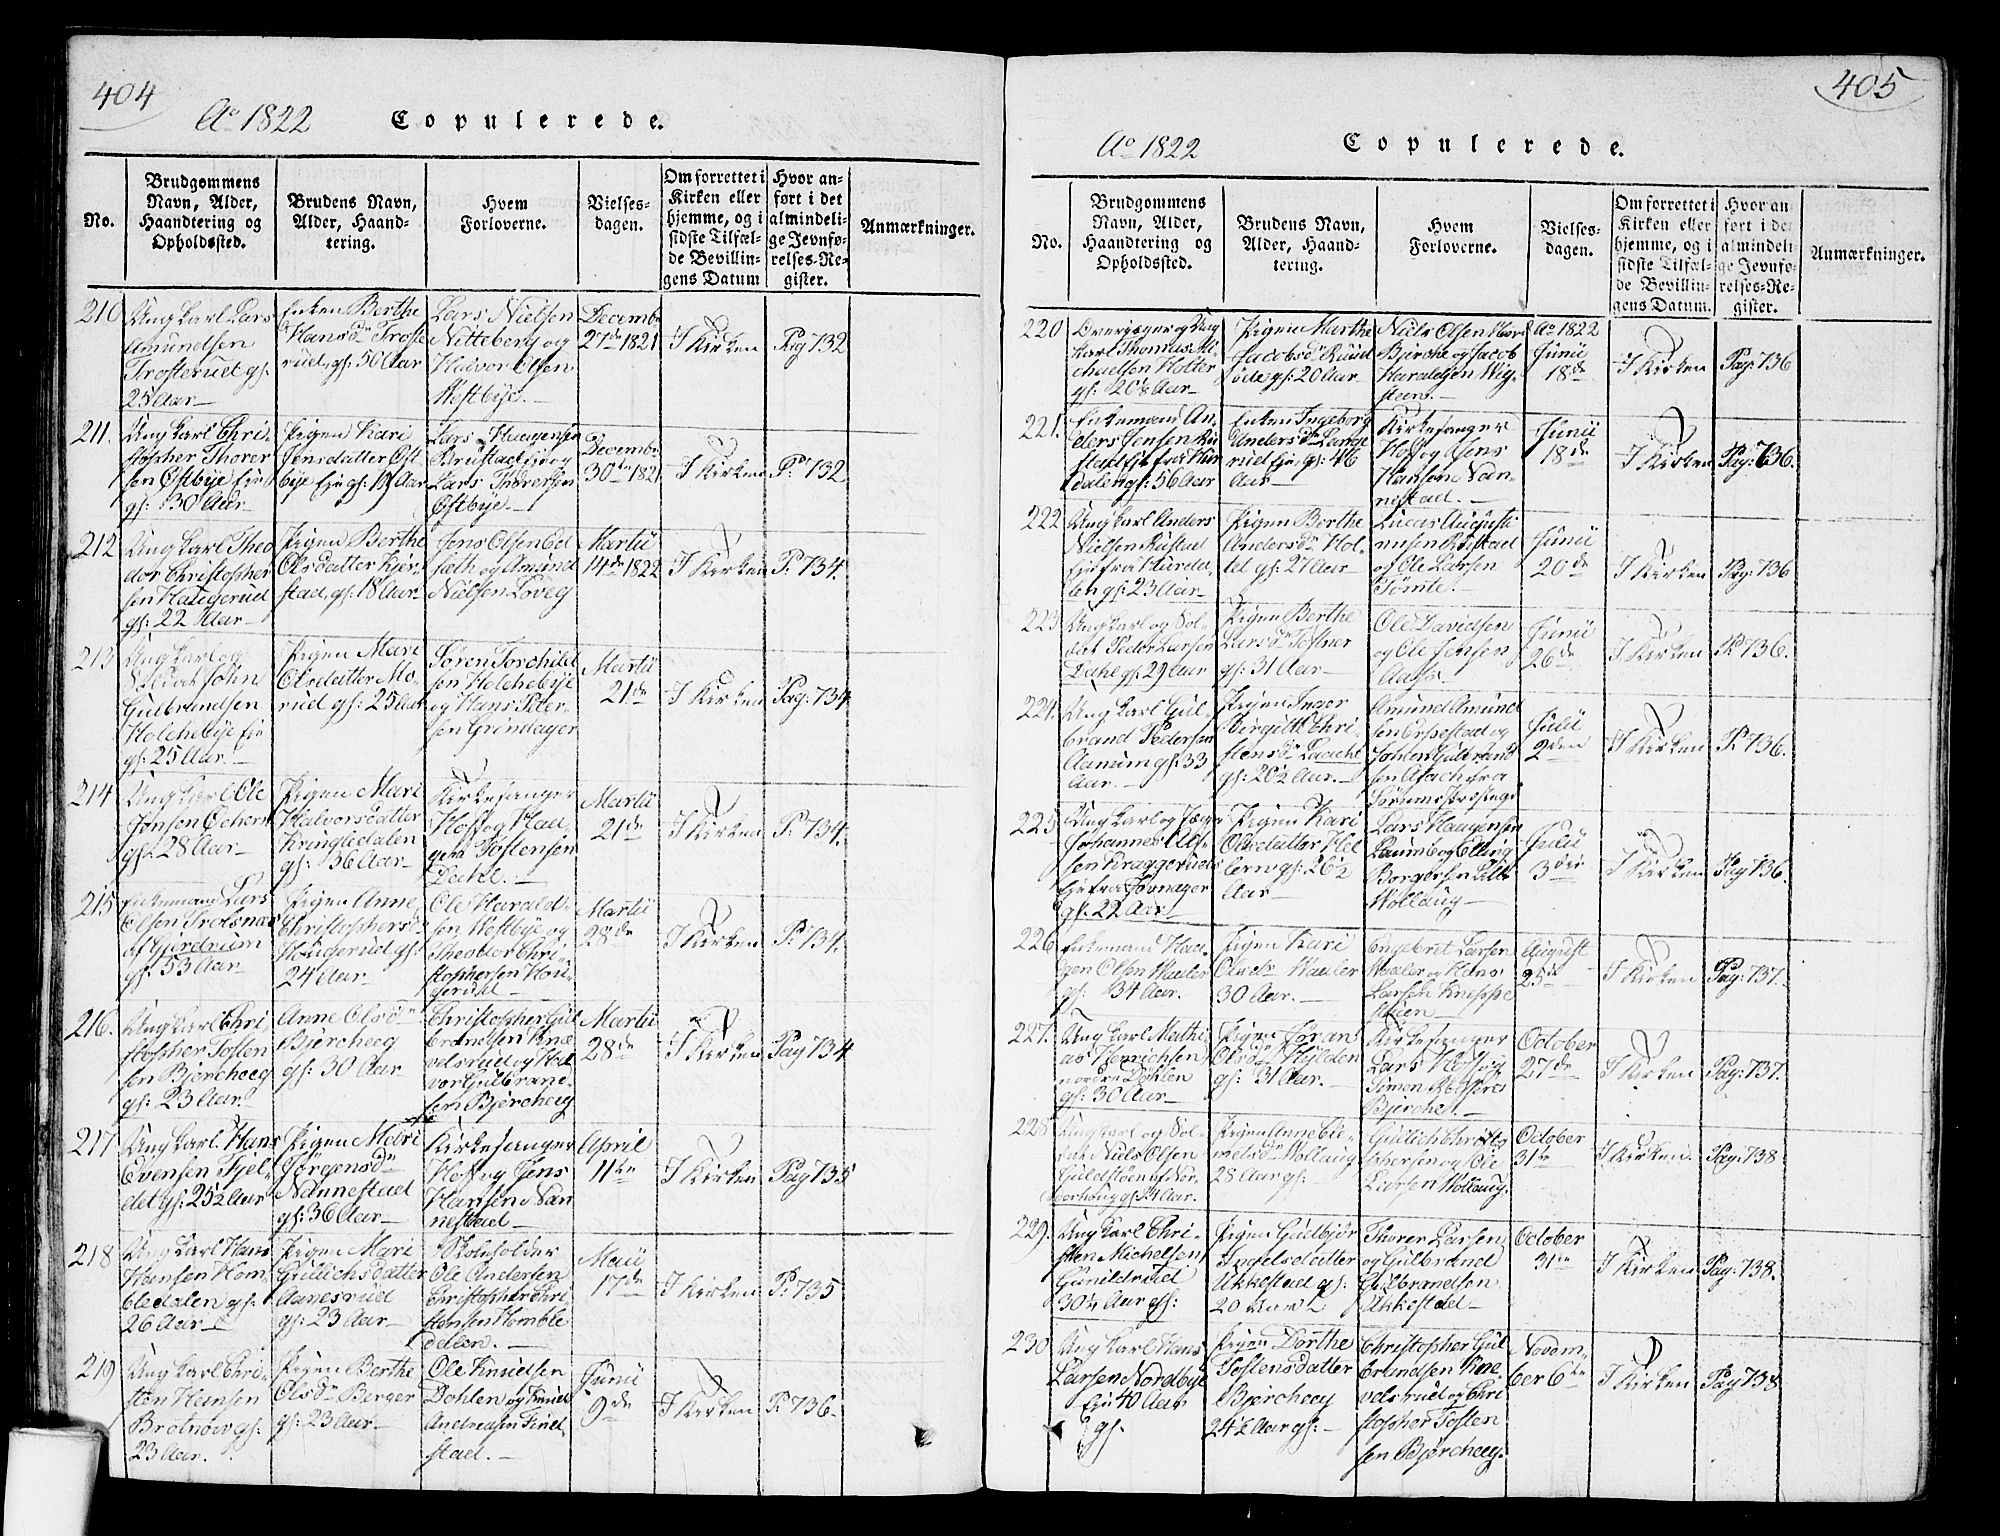 404
Ao 1822 Copulerede.
No.
Brudgommens
Navn, Alder,
Haandtering og
Opholdssted.
Brudens Navn,
Alder, Haand-
tering.
Hvem
Forloverne.
Vielses-
dagen.
Om forrettet i
Kirken eller
hjemme, og i
sidste Tilfæl-
de Bevillin-
gens Datum
Hvor an-
ført i det
almindeli-
ge Jevnfø-
relses-Re-
gister.
Anmærkninger.
210
Ung Karl Lars
Amundsen
Trosterud gs:
25 Aar—
Enken Berthe
Hansdr Troste
rud, gs: 50 Aar
Lars Nielsen
Nitteberg og
Halvor Olsen
Westbye.—
Decembr
27de 1821
I Kirken
Pag 732
211.
Ung Karl Chri-
stopher Thorer
sen Østbye Eje
gs: 30 Aar—
Pigen Kari
Jensdatter Øst
bye Eje gs: 19 Aar
Lars Haagensen
Brustad Eje og
Lars Thorersen
Østbye.—
Decembr
30te 1821
I Kirken
P: 732
212
Ung Karl Theo
dor Christopher
sen Haugerud
gs: 22 Aar—
Pigen Berthe
Olsdatter Kjer
stad, gs: 18 Aar
Jens Olsen
og Amund
Nielsen Løveg
Martii
14de 1822
I Kirken
P: 734.
213
Ung Karl og
Soldat John
Gulbrandsen
Holchebye Eje
gs: 25 Aar—
Pigen Mari
Olsdatter Mo
rud gs: 25 Aar
Søren Torchild
sen Holchebye
og Hans Peter-
sen Grindager
Martii
21de
I Kirken
Pag: 734
214
Ung Karl Ole
Jonsen Ochern
gs: 28 Aar—
Pigen Mari
Halvorsdatter
Kringledalen
gs: 36 Aar
Kirkesanger
Hoff og Haa
gen Tostensen
Dahl.—
Martii
21de
I Kirken
P: 734.
215
Enkemand Lars
Olsen
af Gjerdrum
gs: 53 Aar
Pigen Anne
Christophersdr
Hougerud gs:
24 Aar
Ole Harald-
sen Westbye og
Theodor Chri-
stophersen Hou-
gerud—
Martii
28de
I Kirken
P: 734.
216.
Ung Karl Chri
stopher Tosten
sen Bjercheeg
gs: 23 Aar
Anne Olsdr
Bjercheeg
gs: 30 Aar
Christopher Gul
brandsen Knæ
velsrud og Hal
vor Gulbrand-
sen Bjercheeg
Martii
28de
I Kirken
Pag 734
217
Ung Karl Hans
Evensen Fjel-
det gs: 25½ Aar
Pigen Mari
Jørgensdr
Nannestad
gs: 36 Aar
Kirkesanger
Hoff og Jens
Hansen Nan
nestad—
April
11te
I Kirken
Pag 735
218
Ung Karl Hans
Hansen Hom
bledalen gs:
26 Aar—
Pigen Mari
Gulichsdatter
Aanesrud
gs: 23 Aar—
Skoleholder
Ole Andersen
Christopher Chri
stensen Homble
dalen.—
Maii
17de
I Kirken
P: 735
219
Ung Karl Chri-
sten Hansen
Brotnow gs:
23 Aar.
Pigen Berthe
Olsdr Berger
gs: 23 Aar
Ole Knudsen
Dohlen og Knud
Andreasen Finel
stad.—
Junii
9de
I Kirken
P: 736.
405
Ao 1822 Copulerede.
No.
Brudgommens
Navn, Alder,
Haandtering og
Opholdssted.
Brudens Navn,
Alder, Haand-
tering.
Hvem
Forloverne.
Vielses-
dagen.
Om forrettet i
Kirken eller
hjemme, og i
sidste Tilfæl-
de Bevillin-
gens Datum.
Hvor an-
ført i det
almindeli-
ge Jevnfø-
relses-Re-
gister.
Anmærkninger.
220
Overjæger og Ung
Karl Thomas Mi
chaelsen Holter
gs: 20⅙ Aar
Pigen Marthe
Jacobsdr Ruud
øde gs: 20 Aar
Niels Olsen Mær
Bjerche og Jacob
Haraldsen Wig-
stein.—
Ao 1822
Junii
18de
I Kirken
Pag: 736
221.
Enkemand An-
ders Jensen Ru
stad Eje fra Hur
dalen gs: 56 Aar
Enken Ingeborg
Andersdr Lange
rud Eje, gs: 46
Aar—
Kirkesanger
Hoff og Jens
Hansen Nan-
nestad.—
Junii
18de
I Kirken
Pag: 736.
222
Ung Karl Anders
Nielsen Rustad
Eje fra Hurda-
len gs: 23 Aar—
Pigen Berthe
Andersdr Hol-
del gs: 27 Aar
Lucas Augusti
nusen Rustad
og Ole Larsen
Tømte.—
Junii
20de
I Kirken
Pag: 736
223
Ung Karl og Sol-
dat Peder Larsen
Dahl gs: 29 Aar
Pigen Berthe
Larsdr Tostner
gs: 31 Aar—
Ole Davidsen
og Ole Jensen
Aass.—
Junii
26de
I Kirken
P: 736.
224.
Ung Karl Gul-
brand Pedersen
Aamum gs: 33
Aar—
Pigen Inger
Birgitte Chri-
stensdr
gs: 20½ Aar.—
Amund Amund
sen Erpestad og
Johan Gulbrand
sen Asach fra
Sørums Præstegd
Julii
2den
I Kirken
P: 736.
225
Ung Karl og Jæger
Johannes Ol-
sen Kraggerud
Eje fra Jovnager
gs: 22 Aar
Pigen Kari
Olsdatter Hel
lern gs: 26½
Aar
Lars Haagensen
Laumb og Elling
Borgersen Lille
Wollaug—
Julii
3die
I Kirken
Pag 736.
226
Enkemand Haa-
gen Olsen Waaler
gs: 34 Aar.
Pigen Kari
Olsdr Waaler
30 Aar.—
Engebret Larsen
Waaler og Hans
Larsen Kneppe
Stuen—
August
25de
I Kirken
Pag: 737.
227.
Ung Karl Mathi-
as Henrichsen
nordre Døhlen
gs: 30 Aar—
Pigen Jøran
Olsdr Hylden
gs: 31 Aar.
Kirkesanger
Lars Hoff og
Simon
Bjerche.—
October
27de
I Kirken
Pag: 737.
228
Ung Karl og Sol-
dat Niels Olsen
Guldsteen af Nor-
derhoug gs: 24 Aar.
Pigen Anne Cle-
metsdr Wollaug
28 Aar gs:
Gulich Christo
phersen og Ole
Larsen Wollaug.
October
31te
I Kirken
Pag: 738.
229.
Ung Karl Chri-
sten Michelsen
Gunildrud
30¼ Aar gs:
Pigen Gudbjør
Ingelsdatter
Ukkestad gs:
20 Aar
Thorer Larsen
og Gulbrand
Gulbrandsen
Ukkestad—
October
31te
I Kirken
Pag: 738.
230
Ung Karl Hans
Larsen Nordbye
Eje 40 Aar
gs.
Pigen Dorthe
Tostensdatter
Bjercheeg
24½ Aar gs:—
Christopher Gul
brandsen Knæ-
velsrud og Chri
stopher Tosten
sen Bjercheeg.
Novem-
ber 6te
I Kirken
Pag 738